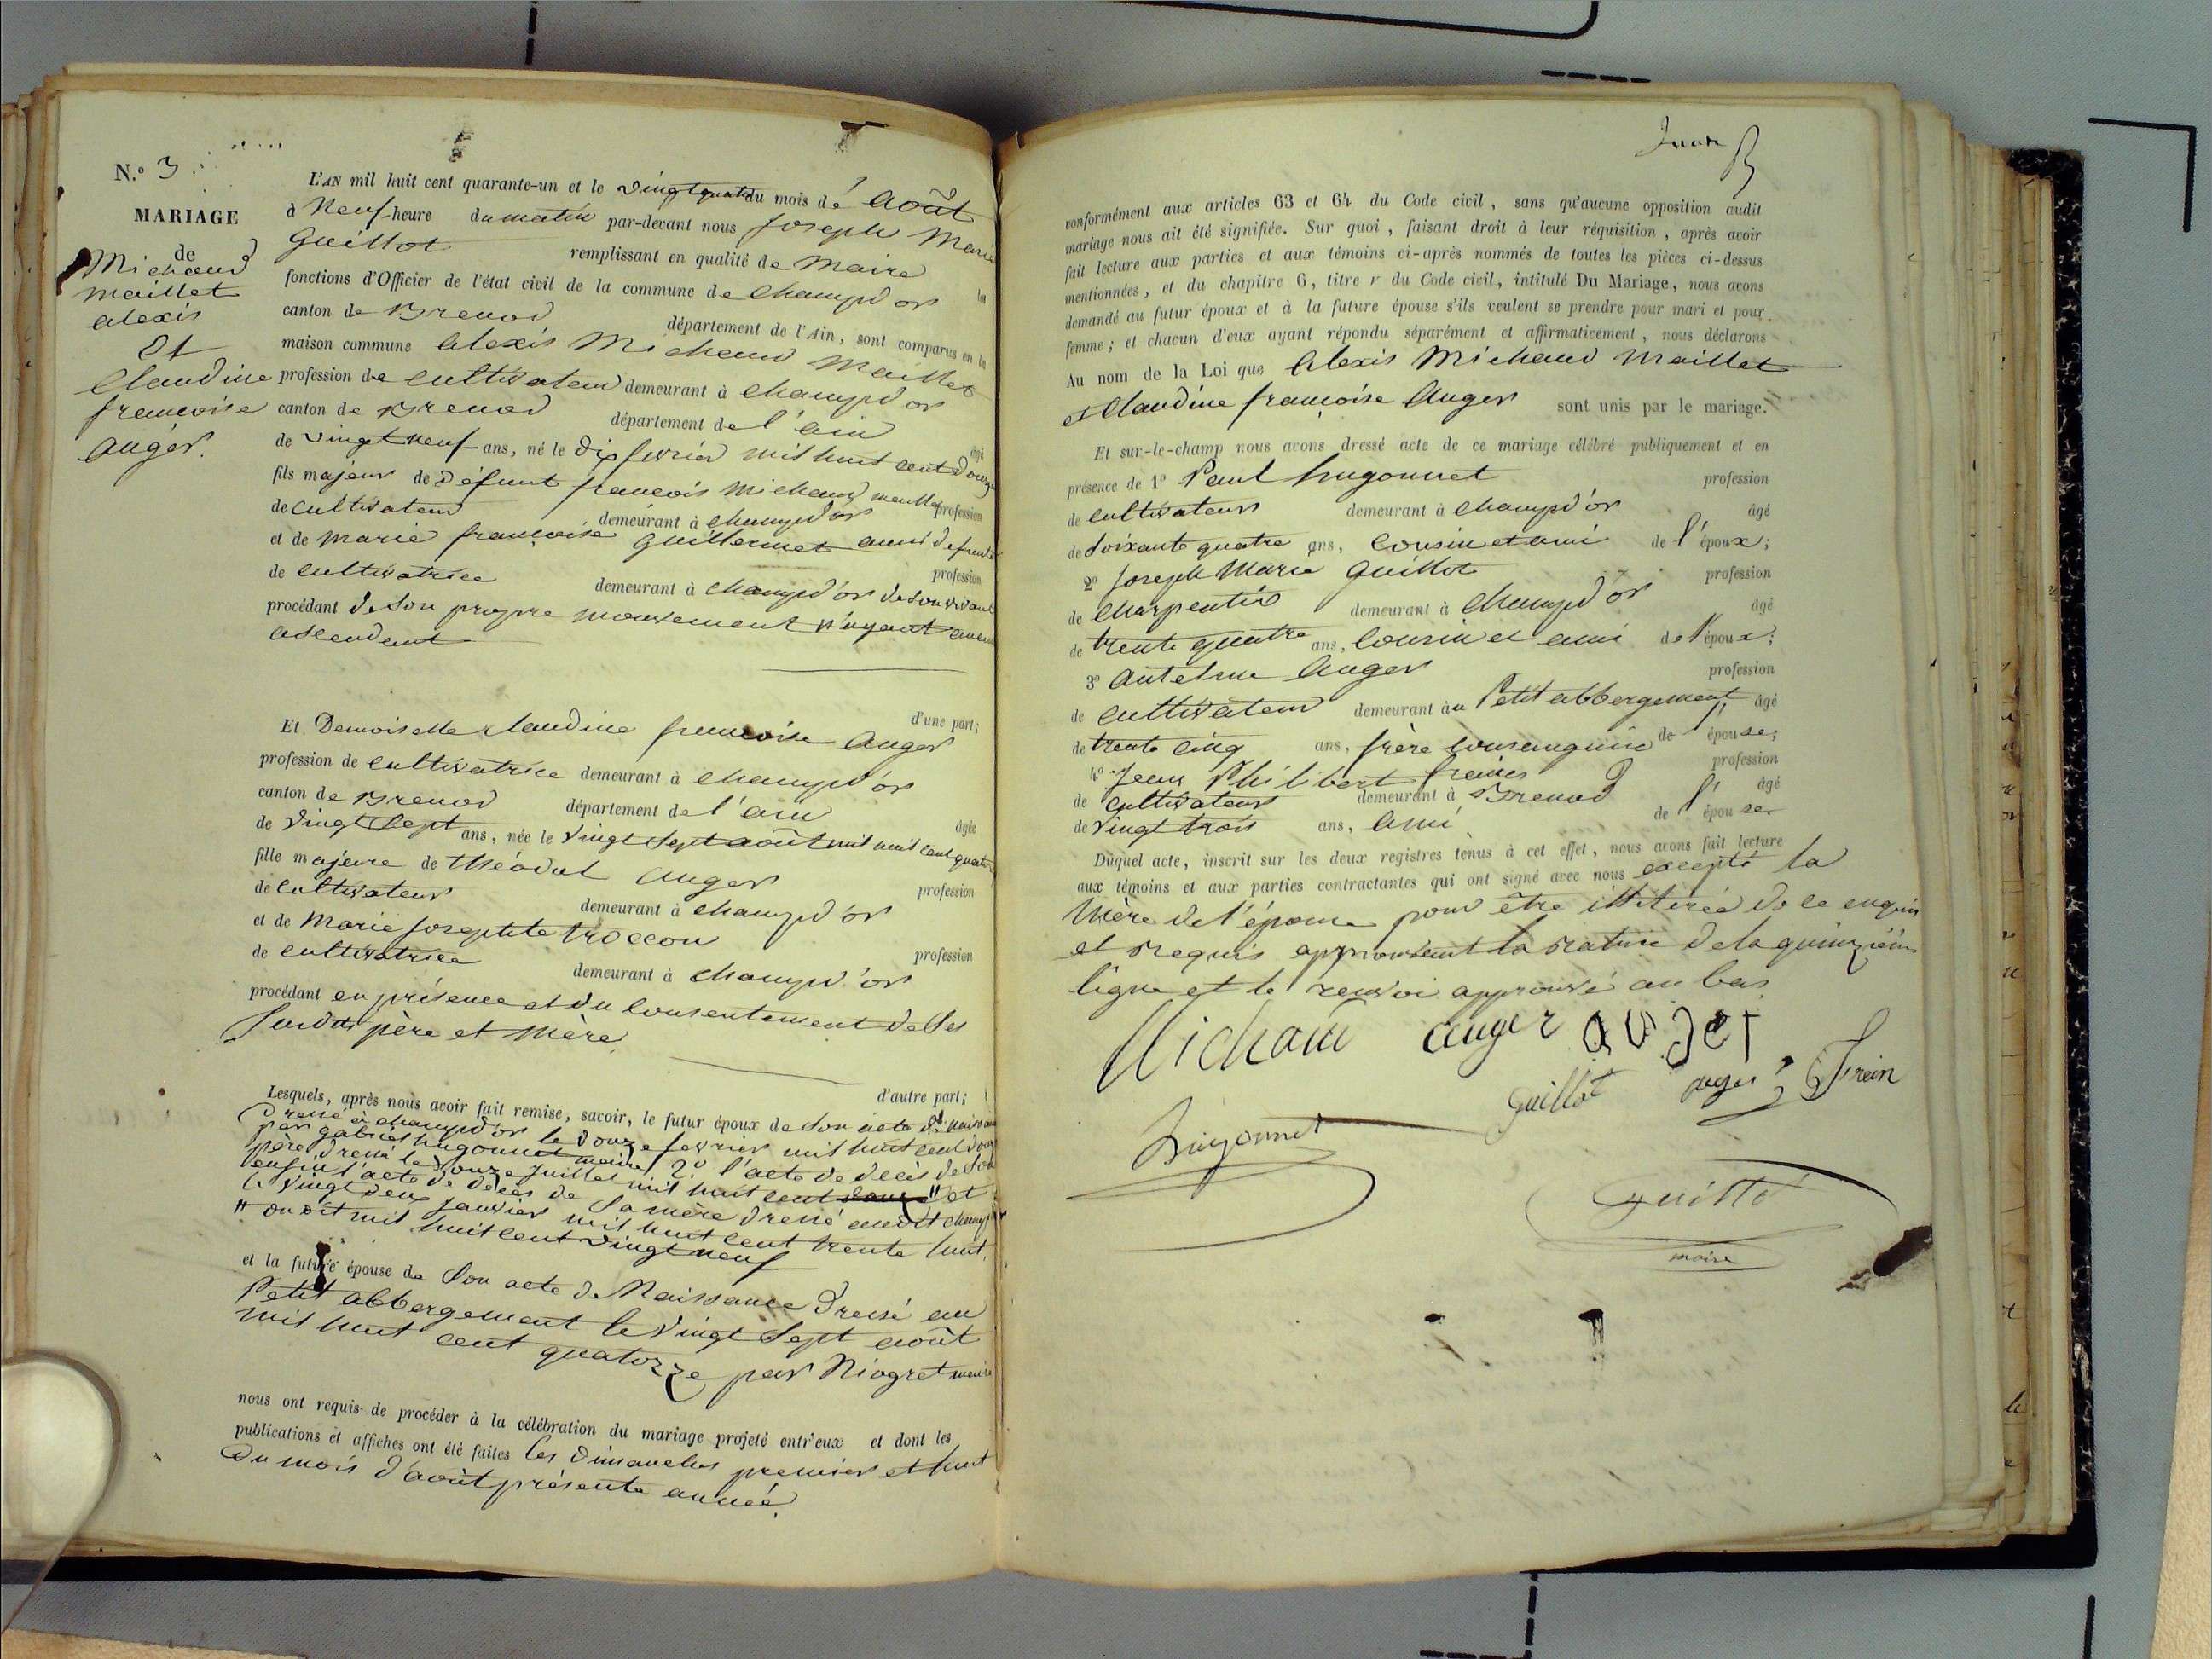 N.o 3
MARIAGE
de
Michaud
maillet
alexis
Et
Claudine
francoise
auger.
L'AN mil huit cent quarante-un et le vingt quatre du mois de août
à Neuf heure du matin par-devant nous Joseph Marie
Guillot remplissant en qualité de Maire les
fonctions d'Officier de l'état civil de la commune de Champd'or
canton de Brenod département de l'Ain, sont comparus en la
maison commune Alexis Michaud Maillet
profession de cultivateur demeurant à Champd'or
canton de Brenod département de l'ain âgé
de vingt neuf ans, né le dix fevrier mil huit cent douze
fils majeur de défunt françois Michaud maillet profession
de cultivateur demeurant à Champd'or
et de marie françoise Guillermet aussi defunte
profession
de cultivatrice demeurant à Champd'or de son vivant
procédant de son propre mouvement n'ayant aucun
ascendant
d'une part;
Et Demoiselle Claudine francoise Auger
profession de cultivatrice demeurant à Champd'or
canton de Brenod département de l'ain âgée
de vingt sept ans, née le vingt sept août mil huit cent quatorze
fille majeure de théodul Auger profession
de cultivateur demeurant à Champd'or
et de Marie Josephte troccon profession
de cultivatrice demeurant à Champd'or
procédant en présence et du consentement de ses
susdits père et mère
d'autre part;
Lesquels, après nous avoir fait remise, savoir, le futur époux de son acte de naissance
Dressé à Champd'or le douze fevrier mil huit cent douze
par gabriel hugonnet maire 2.o l'acte de décès de son
père dressé le douze juillet mil huit cent et
enfin l'acte de décès de sa mère dressé audit Champd'or
le vingt deux janvier mil huit cent trente huit.
" on dit mil huit cent vingt neuf
et la future épouse de son acte de Naissance Dressé au
Petit abbergement le vingt sept août
mil huit cent quatorze par Niogret maire
nous ont requis de procéder à la célébration du mariage projeté entr'eux et dont les
publications et affiches ont été faites les dimanches premier et huit
du mois d'août présente année.
conformément aux articles 63 et 64 du Code civil, sans qu'aucune opposition audit
mariage nous ait été signifiée. Sur quoi, faisant droit à leur réquisition, après avoir
fait lecture aux parties et aux témoins ci-après nommés de toutes les pièces ci-dessus
mentionnées, et du chapitre 6, titre v du Code civil, intitulé Du Mariage, nous avons
demandé au futur époux et à la future épouse s'ils veulent se prendre pour mari et pour
femme; et chacun d'eux ayant répondu séparément et affirmativement, nous déclarons
Au nom de la Loi que Alexis Michaud Maillet
et Claudine françoise Auger sont unis par le mariage.
Et sur-le-champ nous avons dressé acte de ce mariage célébré publiquement et en
présence de 1o Paul hugonnet profession
de cultivateur demeurant à Champd'or âgé
de soixante quatre ans, cousin et ami de l'époux;
2o Joseph Marie Guillot profession
de Charpentier demeurant à Champd'or âgé
de trente quatre ans, cousin et ami de l'époux;
3o Antelme Auger profession
de cultivateur demeurant au Petit abbergement, âgé
de trente cinq ans, frère consanguin de l'épouse;
4o Jean Philibert freins profession
de cultivateur demeurant à Brenod âgé
de vingt trois ans, ami de l'épouse.
Duquel acte, inscrit sur les deux registres tenus à cet effet, nous avons fait lecture
aux témoins et aux parties contractantes qui ont signé avec nous excepté la
Mère de l'épouse pour être illitérée de ce enquis
et requis approuvant la rature de la quinzième
ligne et le renvoi approuvé au bas
Michaud auger auger
Guillot auger Frein
Hugonnet
Guillot
maire